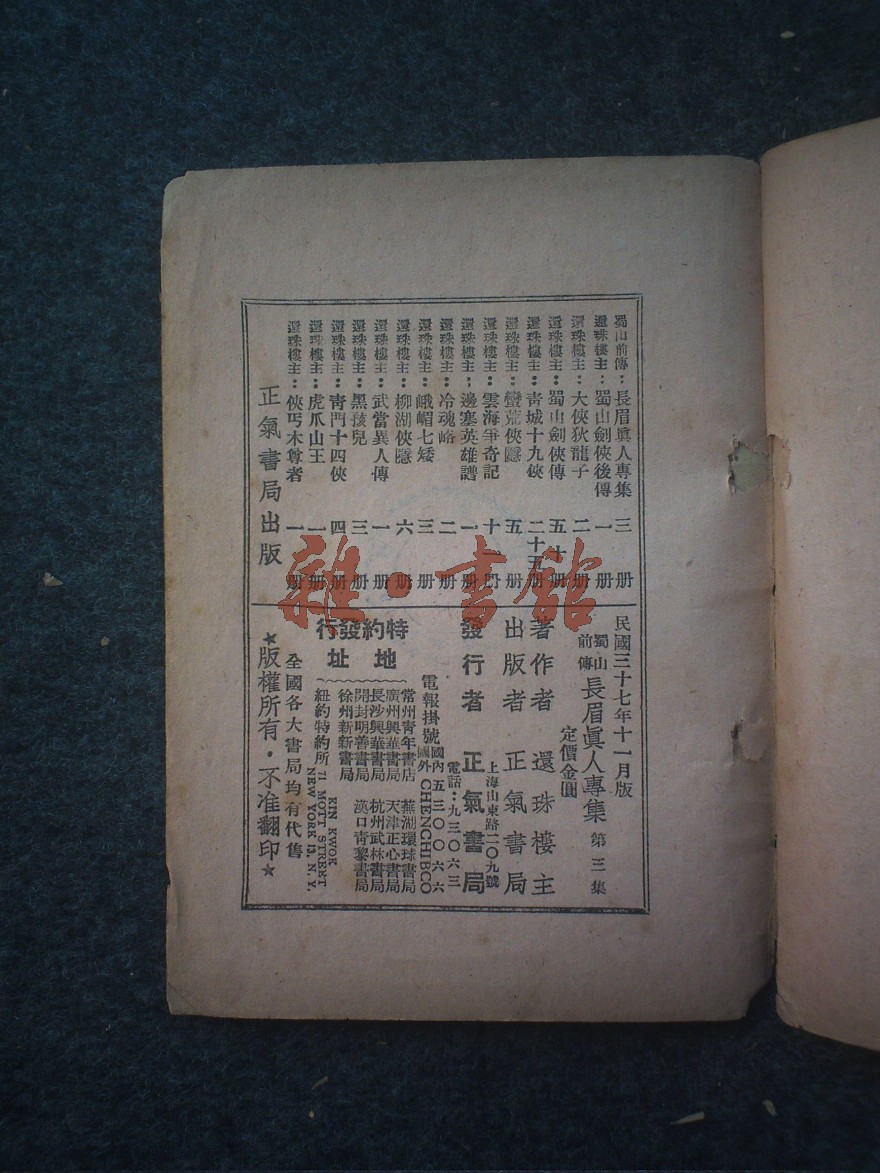 蜀山前傳：長眉眞人專集 三册
還珠樓主：蜀山劍俠後傳 一册
還珠樓主：大俠狄龍子 二册
還珠樓主：蜀山劍俠傳 五十册
還珠樓主：青城十九俠 二十五册
還珠樓主：蠻荒俠隱 五册
還珠樓主：雲海爭奇記 十 册
還珠樓主：邊塞英雄譜 一册
還珠樓主：冷魂峪 二册
還珠樓主：峨嵋七矮 三册
還珠樓主：柳湖俠隱 六册
還珠樓主：武當異人傳 一册
還珠樓主：黑孩兒 三册
還珠樓主：青門十四俠 四册
還珠樓主：虎爪山王 一册
還珠樓主：俠丐木尊者 一册
正氣書局出版
民國三十七年十一月版
蜀山前傳 長眉眞人專集 第三集
定價金圓
著作者 還珠樓主
出版者 正氣書局
發行者 正氣書局
上海山東路二〇九號
電話：九三〇六三
電報掛號 國內 五三〇〇六六
國外 CHENCHIBCO
特約發行地址
常州青年書店 蕪湖環球書局
廣州興華書局 天津正心書局
長沙興華書局 杭州武林書局
開封明善書局 漢口青黎書局
徐州新新書局
紐約特約所 KIN KWOK
71 MOTT STREET
NEW YORK 13, N. Y.
全國各大書局均有代售
★版權所有·不准翻印★
雜·書館